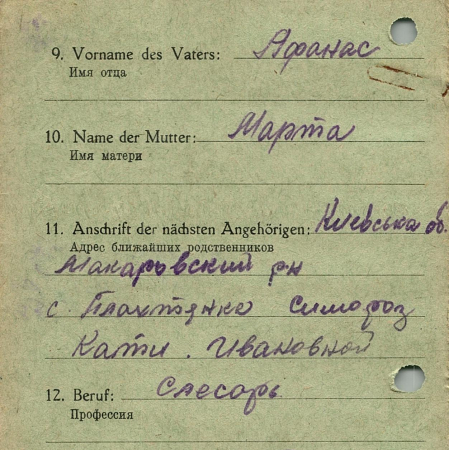 9. Vorname des Vaters: Афанас
Имя отца
10. Name der Mutter: Марта
Имя матери
11. Anschrift der nächsten Angehörigen: Киевська об.
Адрес ближайших родственников
Макаровский рн
с. Плахтянка Симороз
Кати. Ивановной
12. Beruf: Слесарь
Профессия